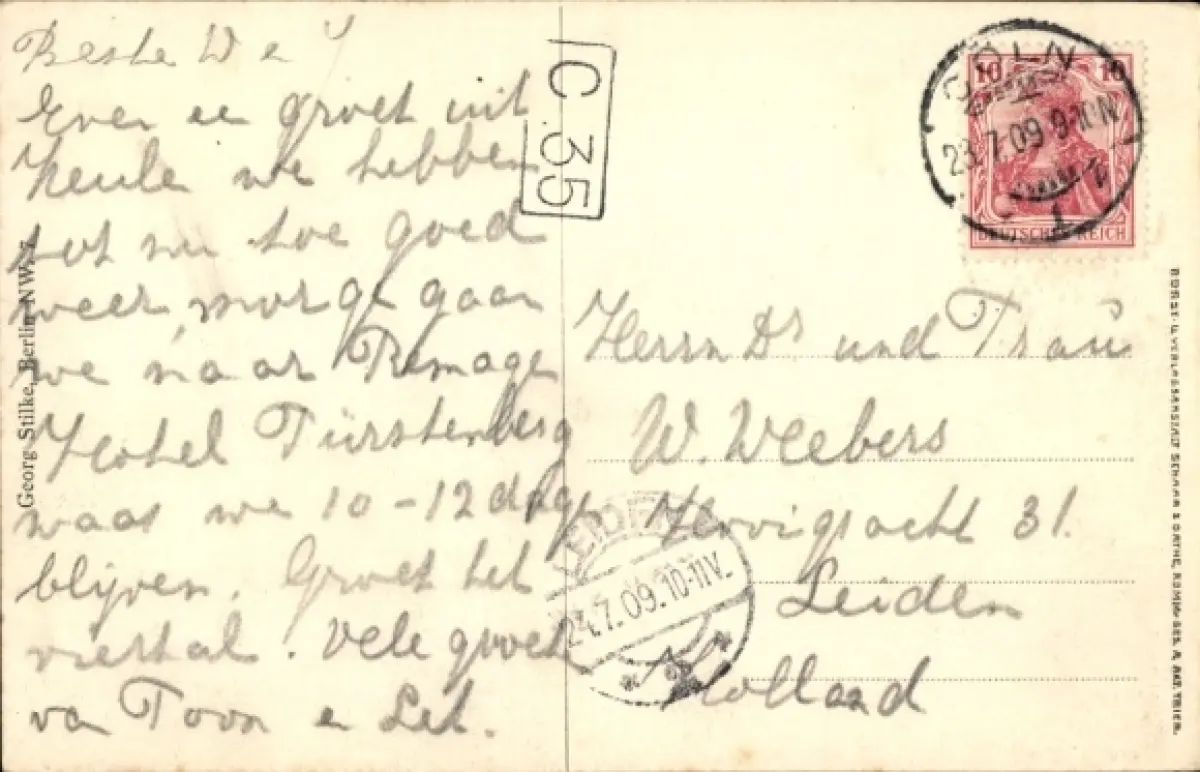 Beste W e J
Even ee groet uit
Keule we hebben
tot nu toe goed
weer, morge gaan
we naar Remage
Hotel Fürstenberg
waar we 10-12 dage
blijven. Groet het
viertal. Vele groet
va Toon e Let.
Georg Stilke, Berlin NW7
C.35
CÖLN
23.7.09 9-10N
1
10 10
DEUTSCHES REICH
Herrn Dr und Frau
W. Weebers
31.
Leiden
Holland
LEIDEN
24.7.09.10-11V.
KUNST- U. VERLAGSANSTALT SCHAAR & DATHE, KOMM.-GES. A. AKT. TRIER.